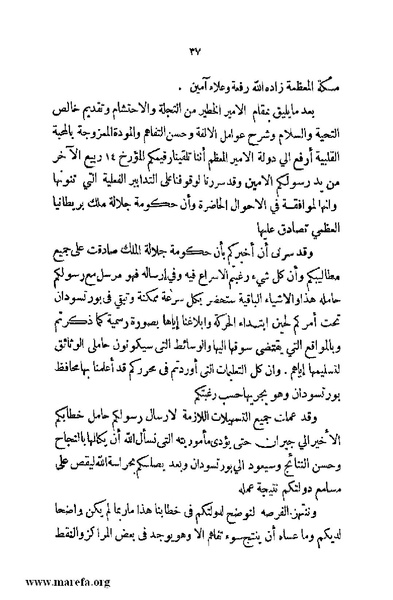 ٣٧
مكة المعظمة زاده الله رفعة وعلاء آمين .
بعد ما يليق بمقام الامير الخطير من التجلة والاحتشام وتقديم خالص
التحية والسلام وشرح عوامل الالفة وحسن التفاهم والمودة الممزوجة بالمحبة
القلبية أرفع الي دولة الامير المعظم أننا تلقينا رقيمكم المؤرخ ١٤ ربيع الآخر
من يد رسولكم الامين وقد سررنا لوقوفنا على التدابير الفعلية التي تنوونها
وانها لموافقة في الاحوال الحاضرة وأن حكومة جلالة ملك بريطانيا
العظمي تصادق عليها
وقد سرني أن أخبركم بأن حكومة جلالة الملك صادقت على جميع
مطاليبكم وأن كل شيء رغبتم الاسراع فيه وفي ارساله فهو مرسل مع رسولكم
حامله هذا والاشياء الباقية ستحضر بكل سرعة ممكنة وتبقي في بورتسودان
تحت أمركم لحين ابتداء الحركة وابلاغنا إياها بصورة رسمية كما ذكرتم
وبالمواقع التي يقتضي سوقها اليها والوسائط التى سيكونون حاملي الوثائق
لتسليمها إياهم . وان كل التعليمات التى أوردتم في محرركم قد أعلمنا بها محافظ
بورتسودان وهو يجريها حسب رغبتكم
وقد عملت جميع التسهيلات اللازمة لارسال رسولكم حامل خطابكم
الأخير الي جيزان حتى يؤدى مأموريته التى نسأل الله أن يكللها بالنجاح
وحسن النتائج وسيعود الي بورتسودان وبعد يصلكم بحراسة الله ليقص على
مسامع دولتكم نتيجة عمله
وننتهز الفرصه لنوضح لدولتكم في خطابنا هذا ما ربما لم يكن واضحا
لديكم وما عساه أن ينتج سوء تفاهم الا وهو يوجد في بعض المراكز والنقط
www.marefa.org